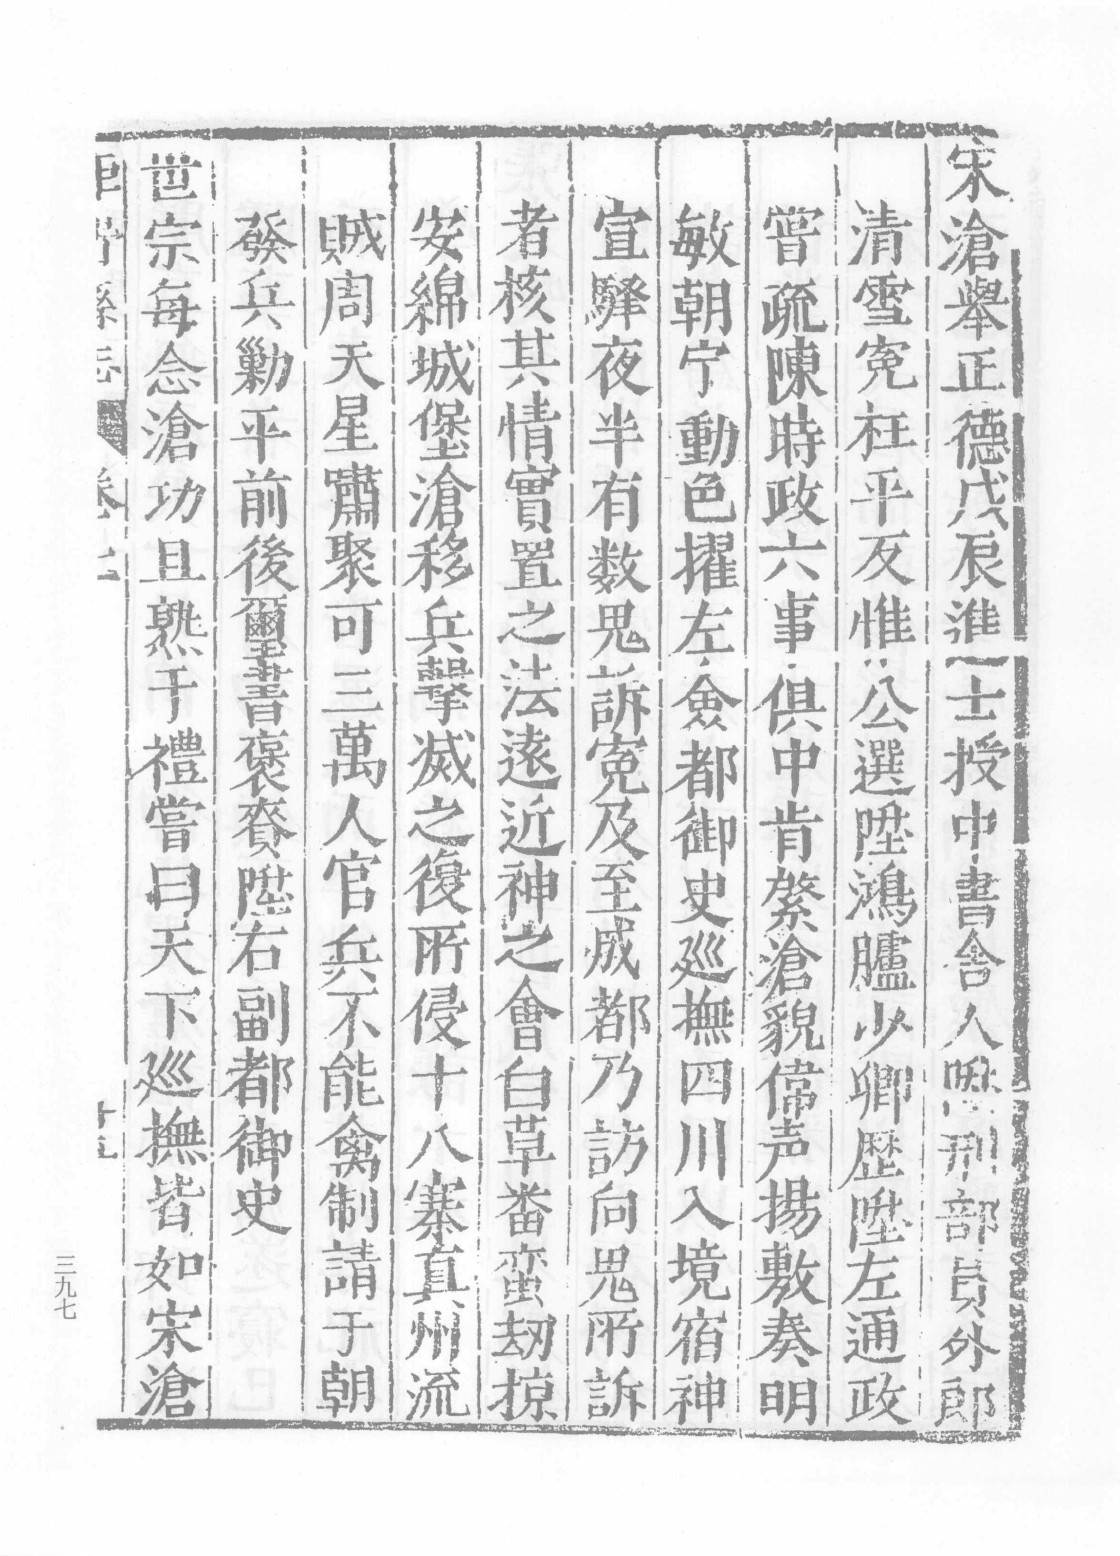 宋滄舉正德戊辰進士授中書舍人陞刑部員外郎
清雪寃枉平反惟公選陞鴻臚少卿歷陞左通政
嘗疏陳時政六事俱中肯綮滄貌偉声揚敷奏明
敏朝宁動色擢左僉都御史廵撫四川入境宿神
宣驛夜半有数鬼訴寃及至成都乃訪向鬼所訴
者核其情實置之法遠近神之會白草畨蛮刼掠
安綿城堡滄移兵擊滅之復所侵十八寨真州流
賊周天星嘯聚可三萬人官兵不能禽制請于朝
發兵勦平前後璽書褒賚陞右副都御史
世宗每念滄功且熟于禮嘗曰天下廵撫皆如宋滄
縣志
卷
十五
三九七